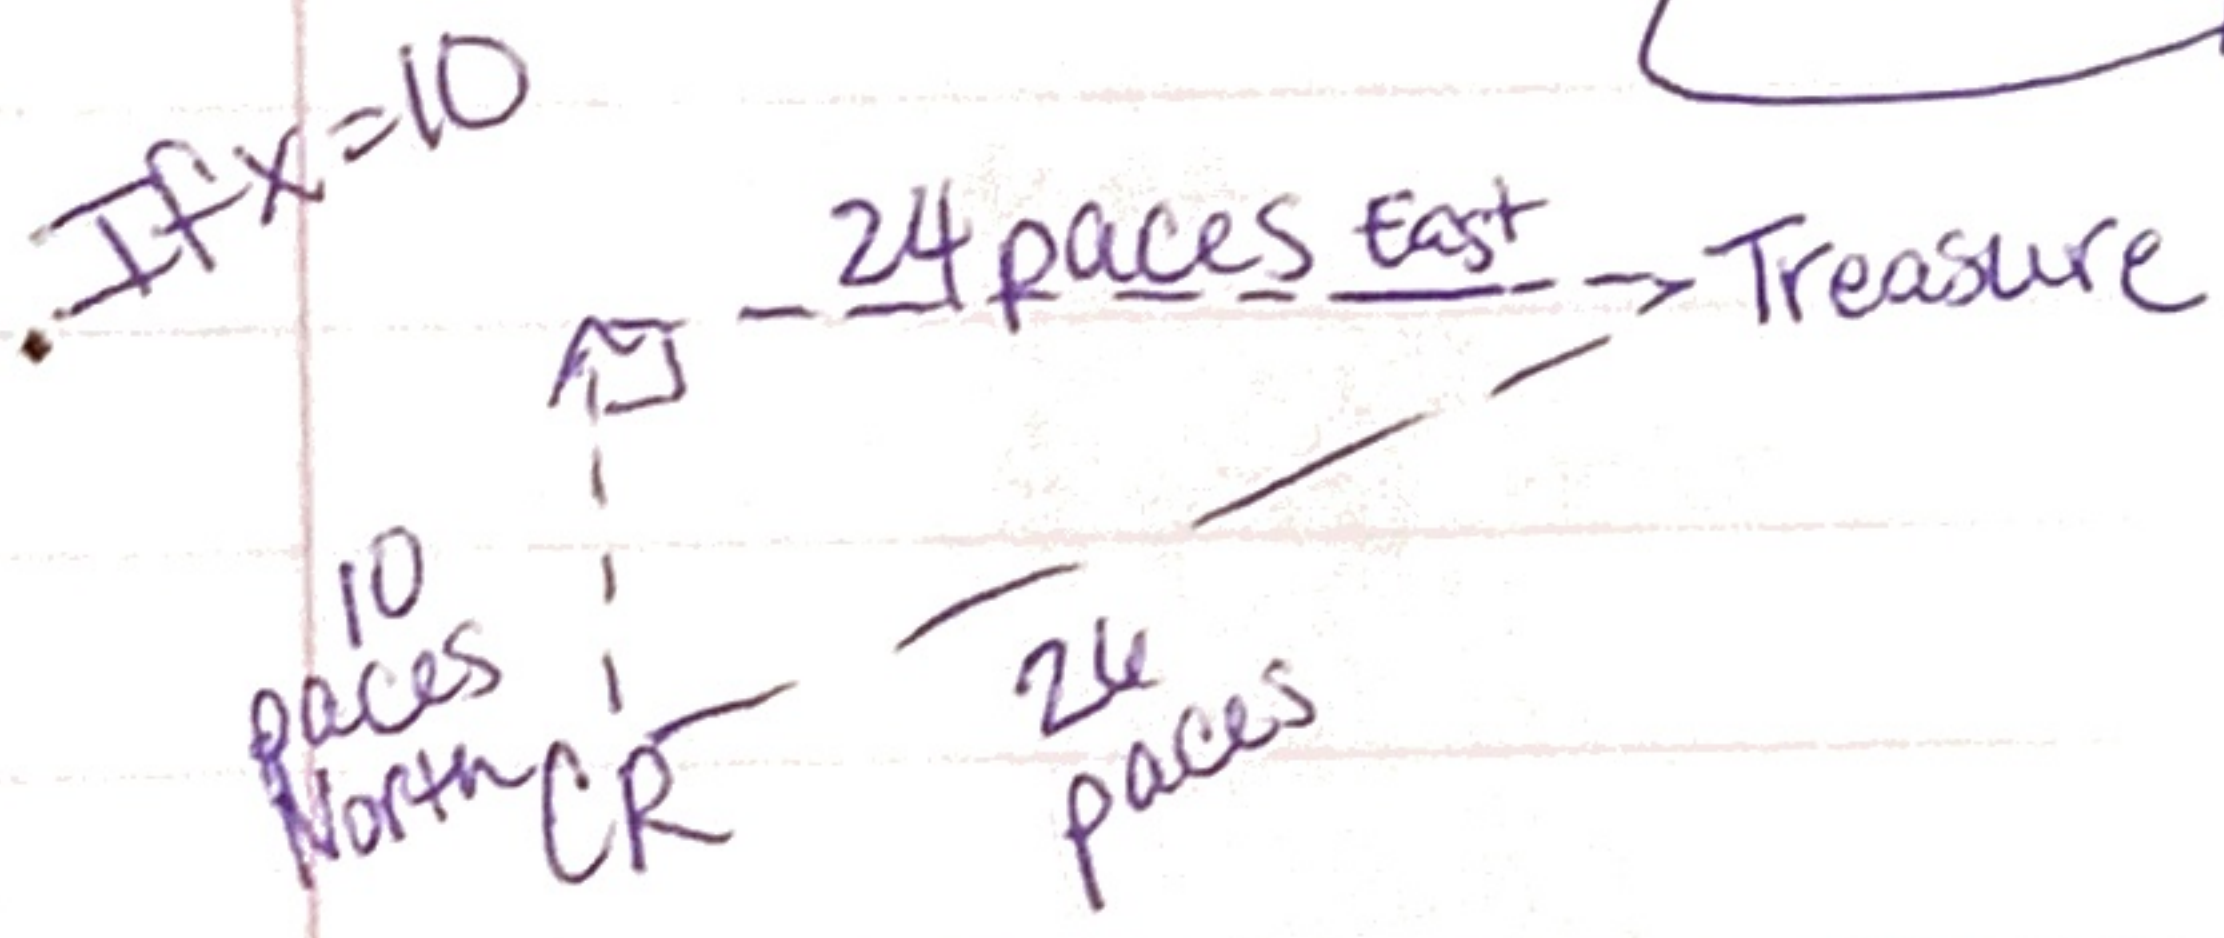 If x=10
24 paces East
Treasure
10
paces
North
CR
26
paces